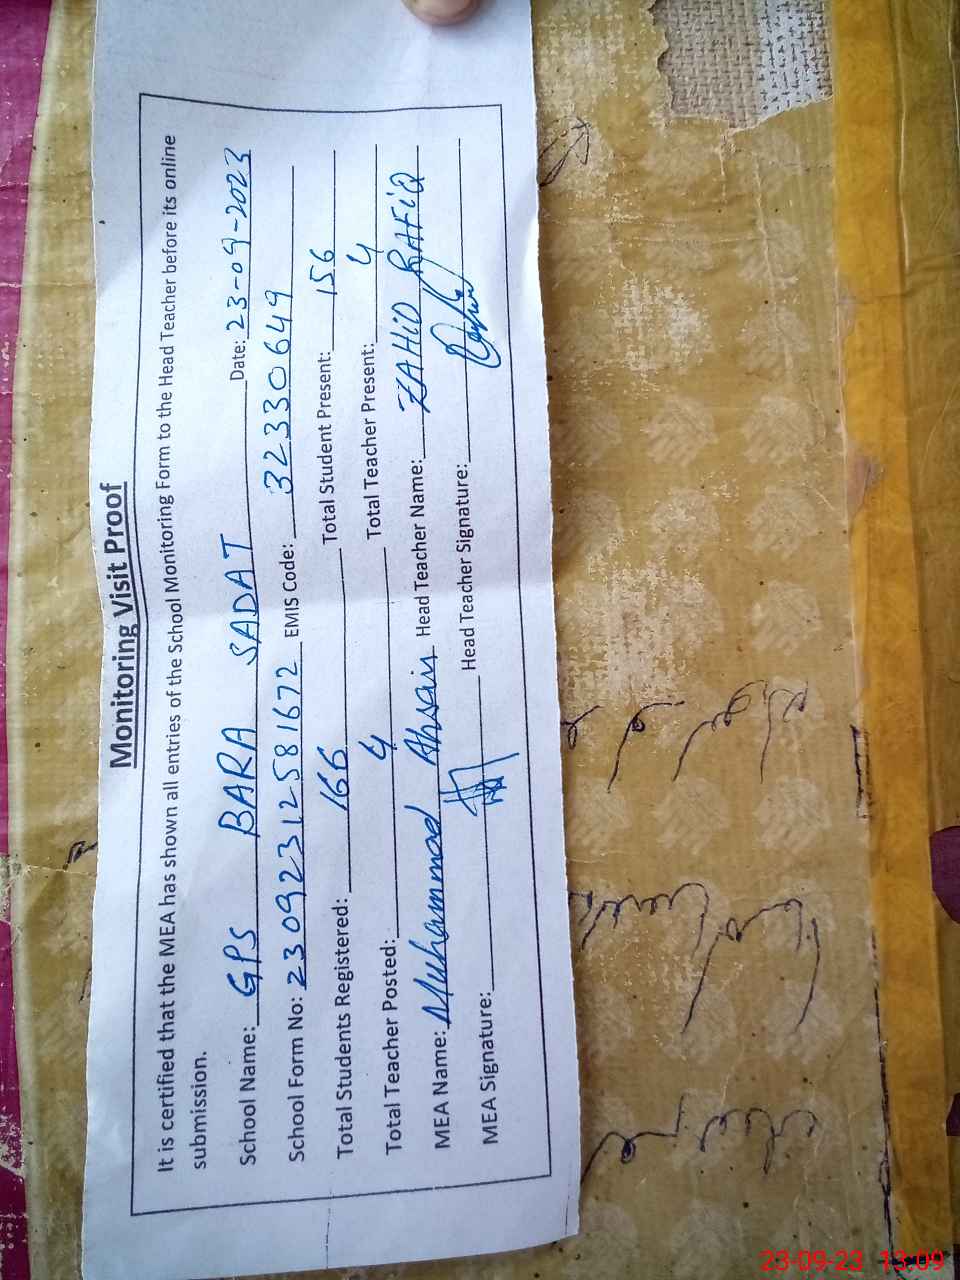 Monitoring Visit Proof
It is certified that the MEA has shown all entries of the School Monitoring Form to the Head Teacher before its online
submission.
School Name: GPS BARA SADAT Date: 23-09-2023
School Form No: 23092312581672 EMIS Code: 32330649
Total Students Registered: 166 Total Student Present: 156
Total Teacher Posted: 4 Total Teacher Present: 4
MEA Name: Muhammad Ahsan Head Teacher Name: ZAHiD RAFiQ
MEA Signature: Head Teacher Signature:
23-09-23 13:09